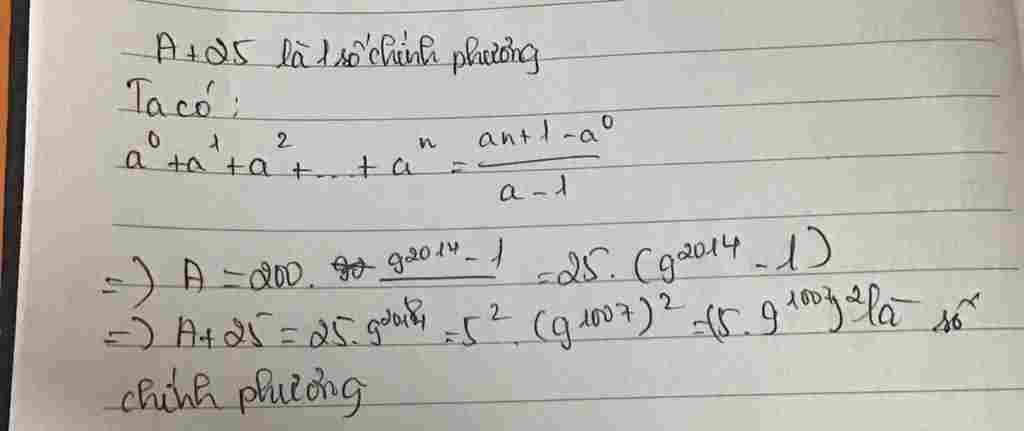 A+25 là 1 số chính phương
Ta có:
a⁰+a¹+a²+...+aⁿ = (an+1-a⁰)/(a-1)
=) A = 200. 9²⁰¹⁴-1 = 25. (9²⁰¹⁴-1)
=) A+25 = 25. 9²⁰¹⁴ = 5². (9¹⁰⁰⁷)² = (5. 9¹⁰⁰⁷)² là số
chính phương